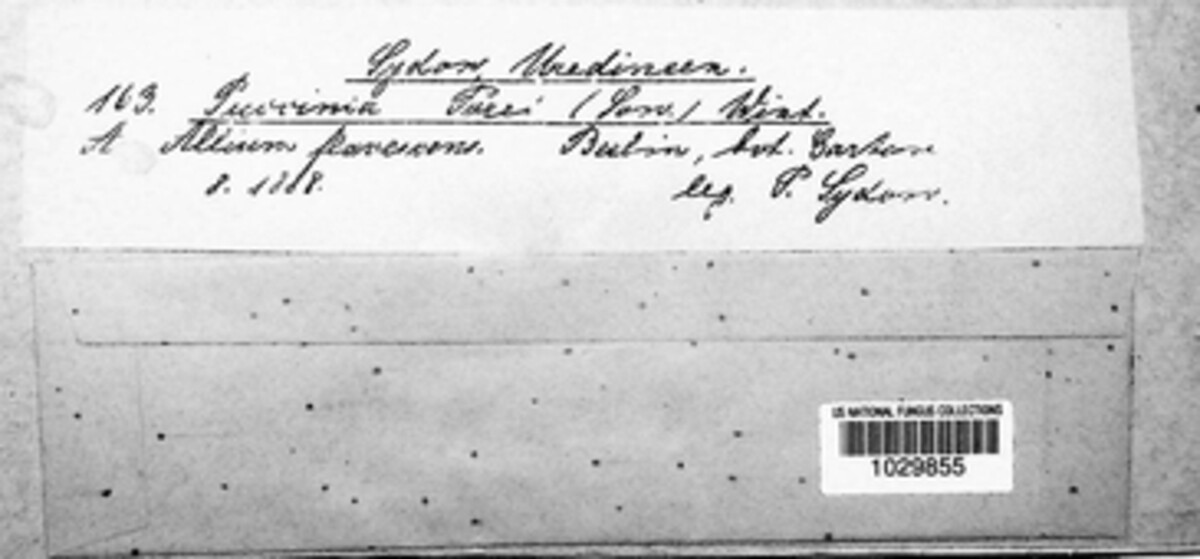 Sydow, Uredineen.
163. Puccinia Porri (Sow.) Wint.
A Allium flavescens. Berlin, bot. Garten
8. 1888.
leg. P. Sydow.
US NATIONAL FUNGUS COLLECTIONS
1029855